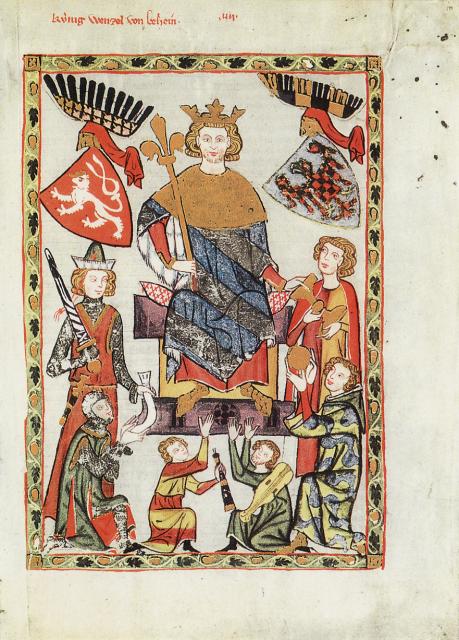 Kúnig Wenzel von behein. .iiij.